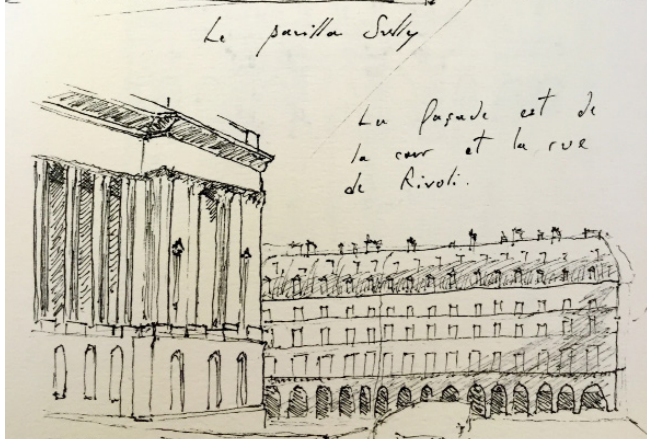 Le pavillon Sully
La façade est de
la cour et la rue
de Rivoli.